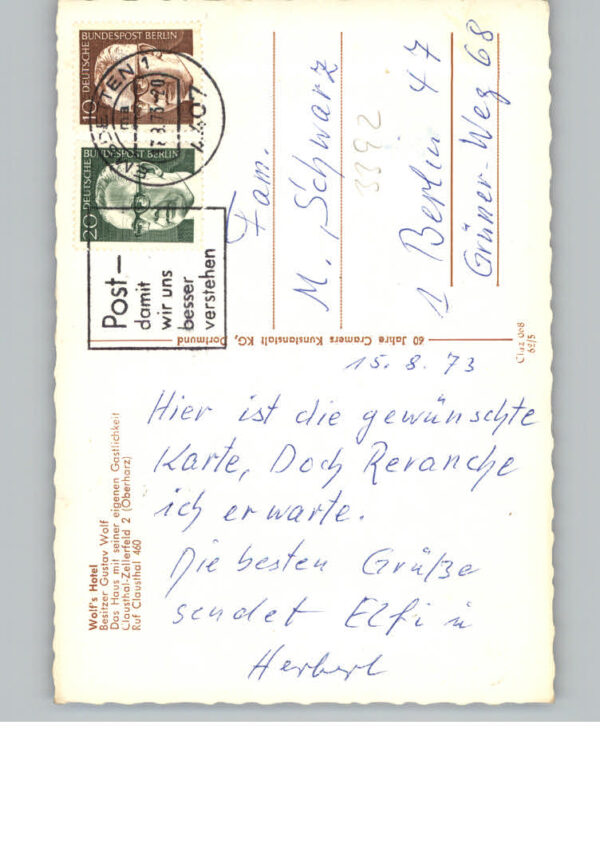 15.8.73
Hier ist die gewünschte
Karte, Doch Revanche
ich erwarte.
Die besten Grüße
sendet Elfi u
Herbert
Fam.
M. Schwarz
1 Berlin 47
Grüner-Weg 68
3392
DEUTSCHE BUNDESPOST BERLIN
10
DEUTSCHE BUNDESPOST BERLIN
20
Post-
damit
wir uns
besser
verstehen
60 Jahre Cramers Kunstanstalt KG, Dortmund
Wolf's Hotel
Besitzer Gustav Wolf
Das Haus mit seiner eigenen Gastlichkeit
Clausthal-Zellerfeld 2 (Oberharz)
Ruf Clausthal 460